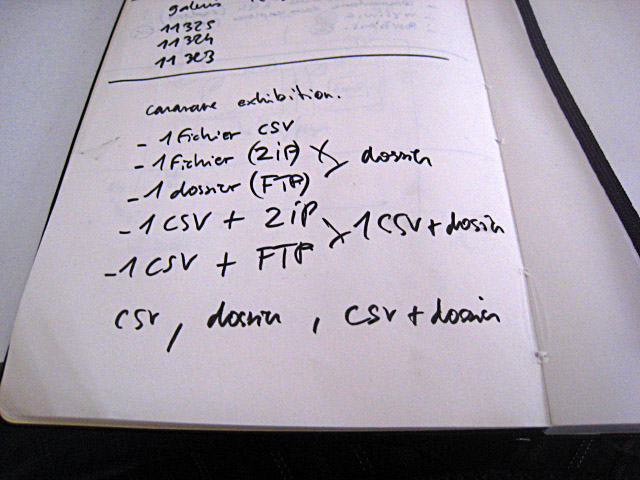 galeris
11325
11324
11323
cararare exhibition.
- 1 Fichier CSV
- 1 Fichier (ZIP)
dossier
- 1 dossier (FTP)
- 1 CSV + ZIP
1 CSV + dossier
- 1 CSV + FTP
CSV, dossier, CSV + dossier